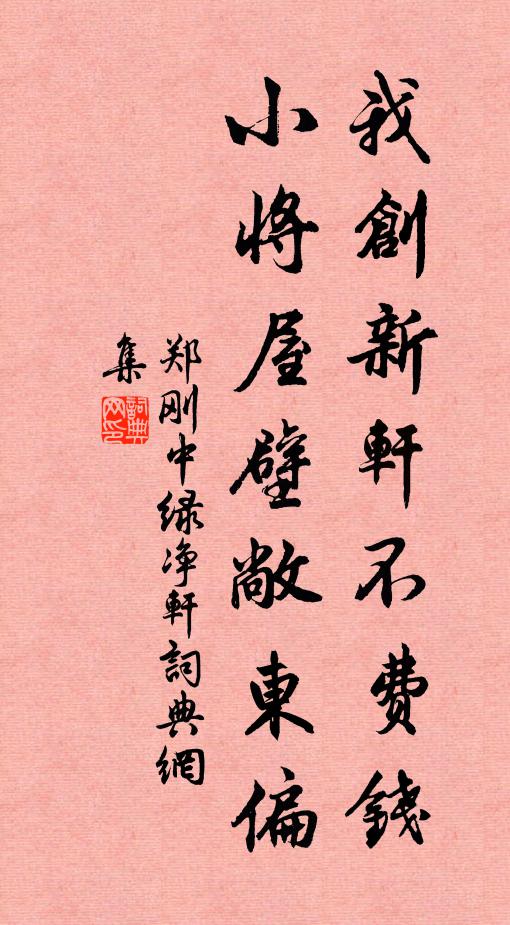 我創新軒不費錢
小將屋壁敞東偏
郑刚中绿净軒詞典網
集
詞典网印